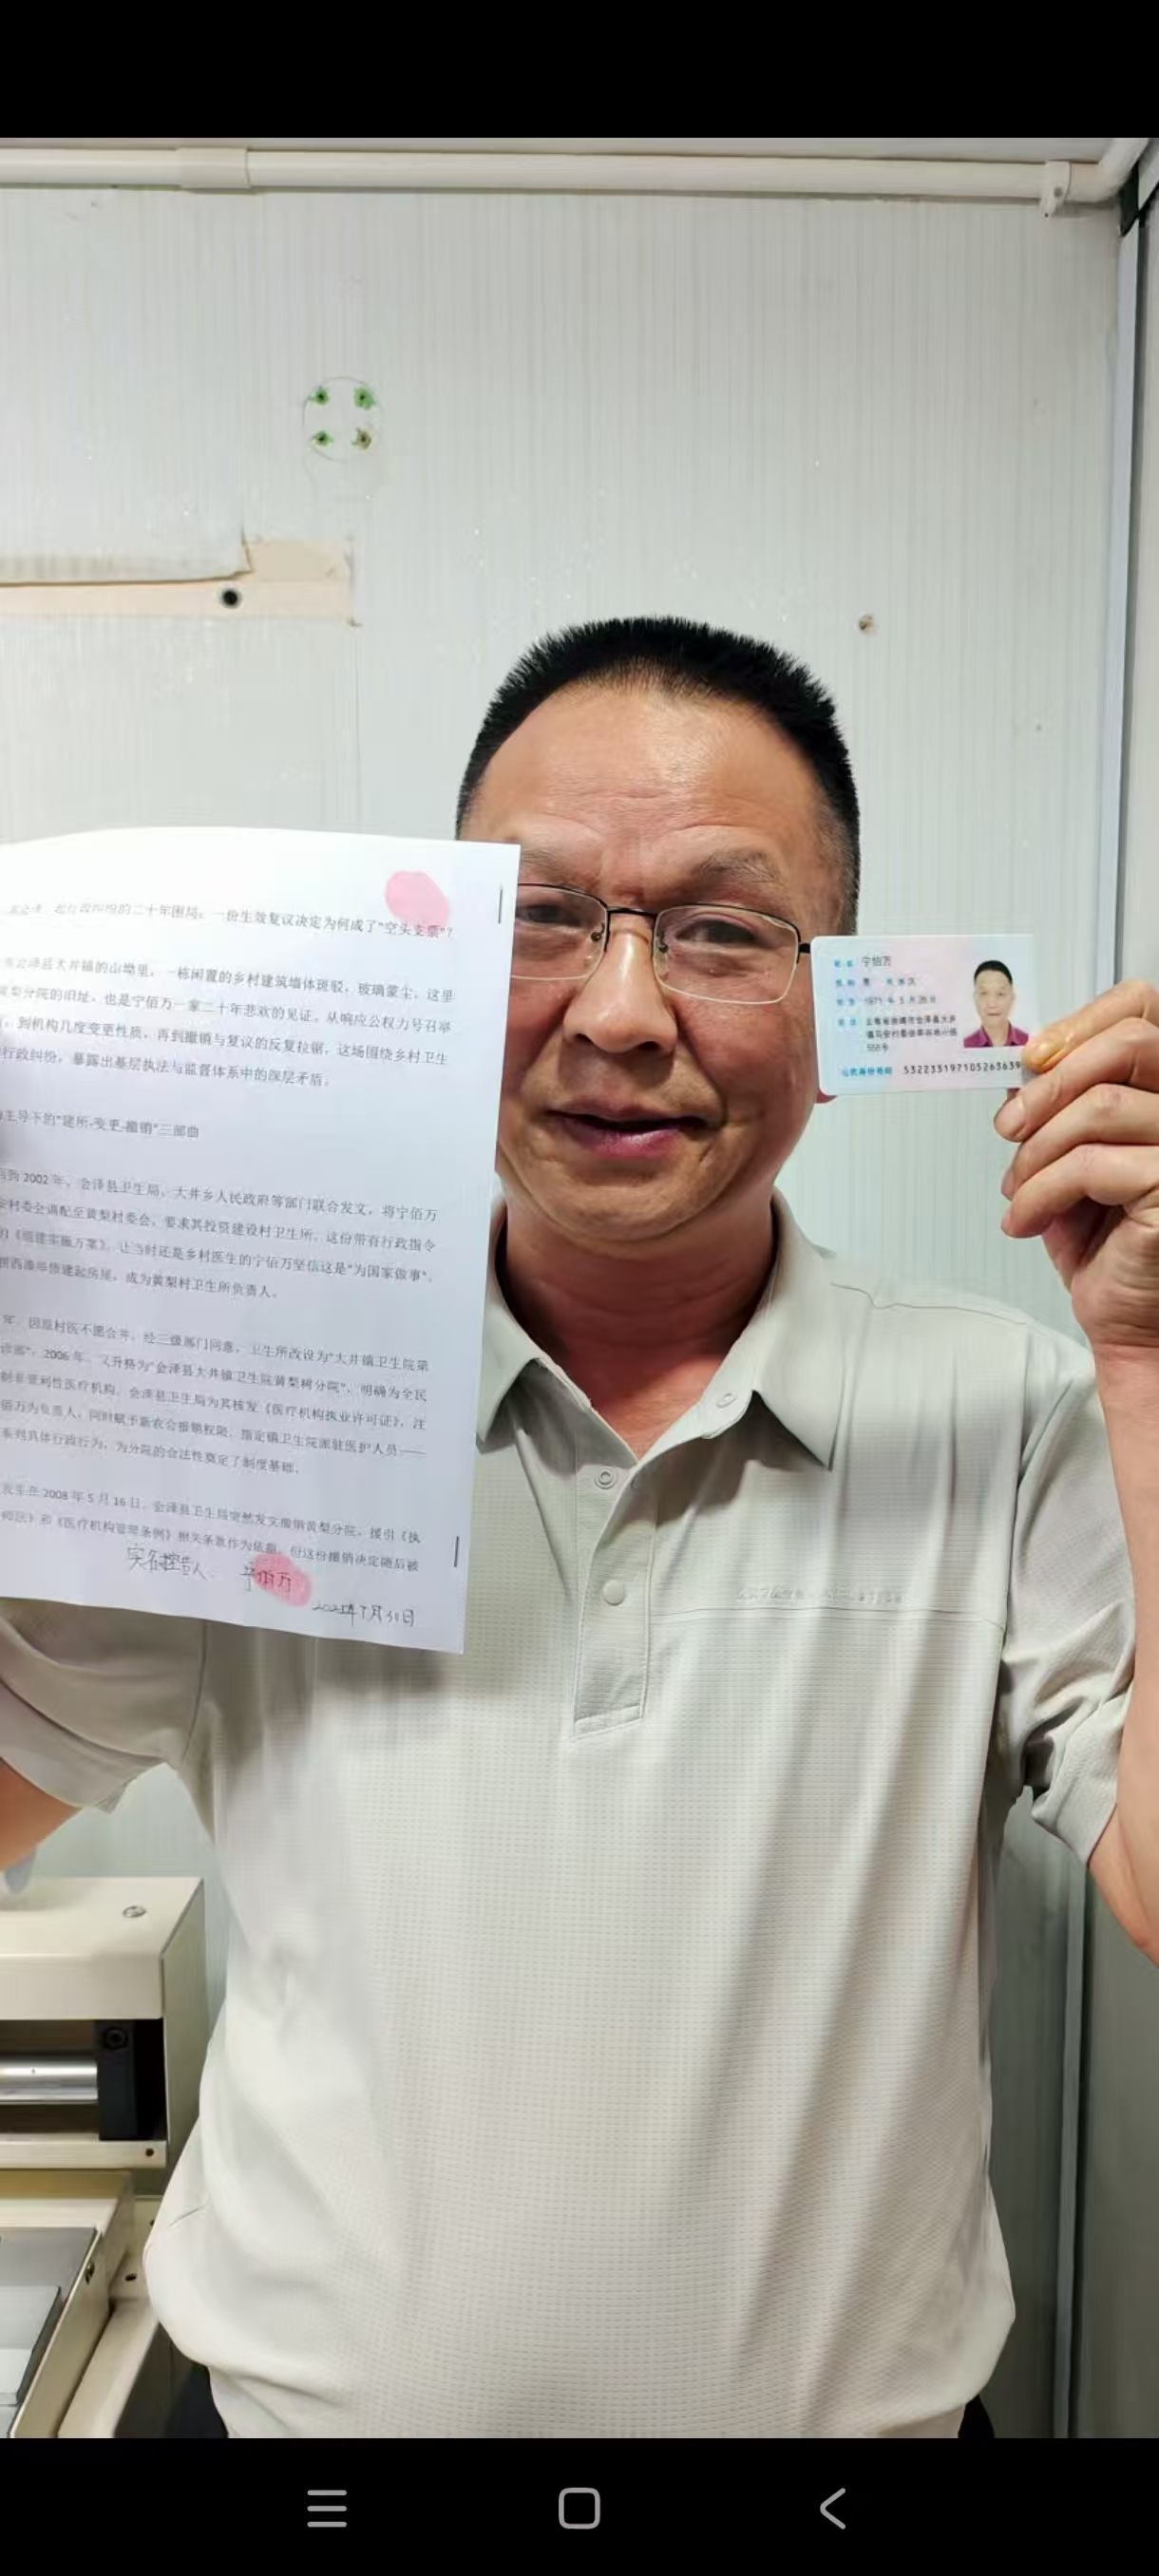 一份生效复议决定为何成了"空头支票"?
会泽县大井镇的山坳里,一栋闲置的乡村建筑墙体斑驳,玻璃蒙尘。这里
分院的旧址,也是宁佰万一家二十年悲欢的见证。从响应公权力号召举
,到机构几度变更性质,再到撤销与复议的反复拉锯,这场围绕乡村卫生
行政纠纷,暴露出基层执法与监督体系中的深层矛盾。
主导下的"建所-变更-撤销"三部曲
到 2002 年。会泽县卫生局、大井乡人民政府等部门联合发文,将宁佰万
村委会调配至黄梨村委会,要求其投资建设村卫生所。这份带有行政指令
《组建实施方案》,让当时还是乡村医生的宁佰万坚信这是"为国家做事",
建起房屋,成为黄梨村卫生所负责人。
年,因原村医不愿合并,经三级部门同意,卫生所改设为"大井镇卫生院第
诊部",2006 年,又升格为"会泽县大井镇卫生院黄梨树分院",明确为全民
制非营利性医疗机构。会泽县卫生局为其核发《医疗机构执业许可证》,注
佰万为负责人,同时赋予新农合报销权限,指定镇卫生院派驻医护人员——
系列具体行政行为,为分院的合法性奠定了制度基础。
发生在 2008 年 5 月 16 日。会泽县卫生局突然发文撤销黄梨分院,援引《执
师法》和《医疗机构管理条例》相关条款作为依据。但这份撤销决定随后被
实名控告人: 宁佰万
月30日
姓名 宁佰万
性别 男 民族 汉
出生 1971 年 5 月 26 日
住址 云南省曲靖市会泽县大井
镇
558号
公民身份号码 532233197105263639